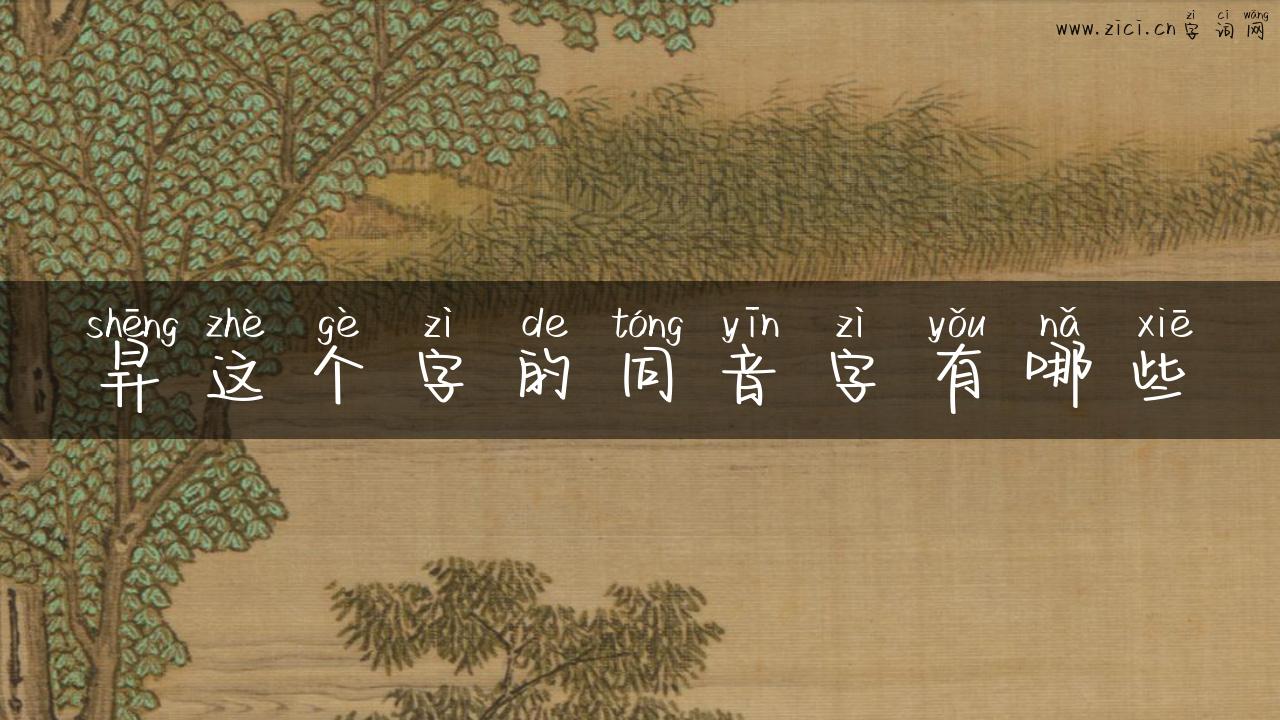 zì cí wǎng
www.zici.cn 字词网
shēng zhè gè zì de tóng yīn zì yǒu nǎ xiē
昇这个字的同音字有哪些